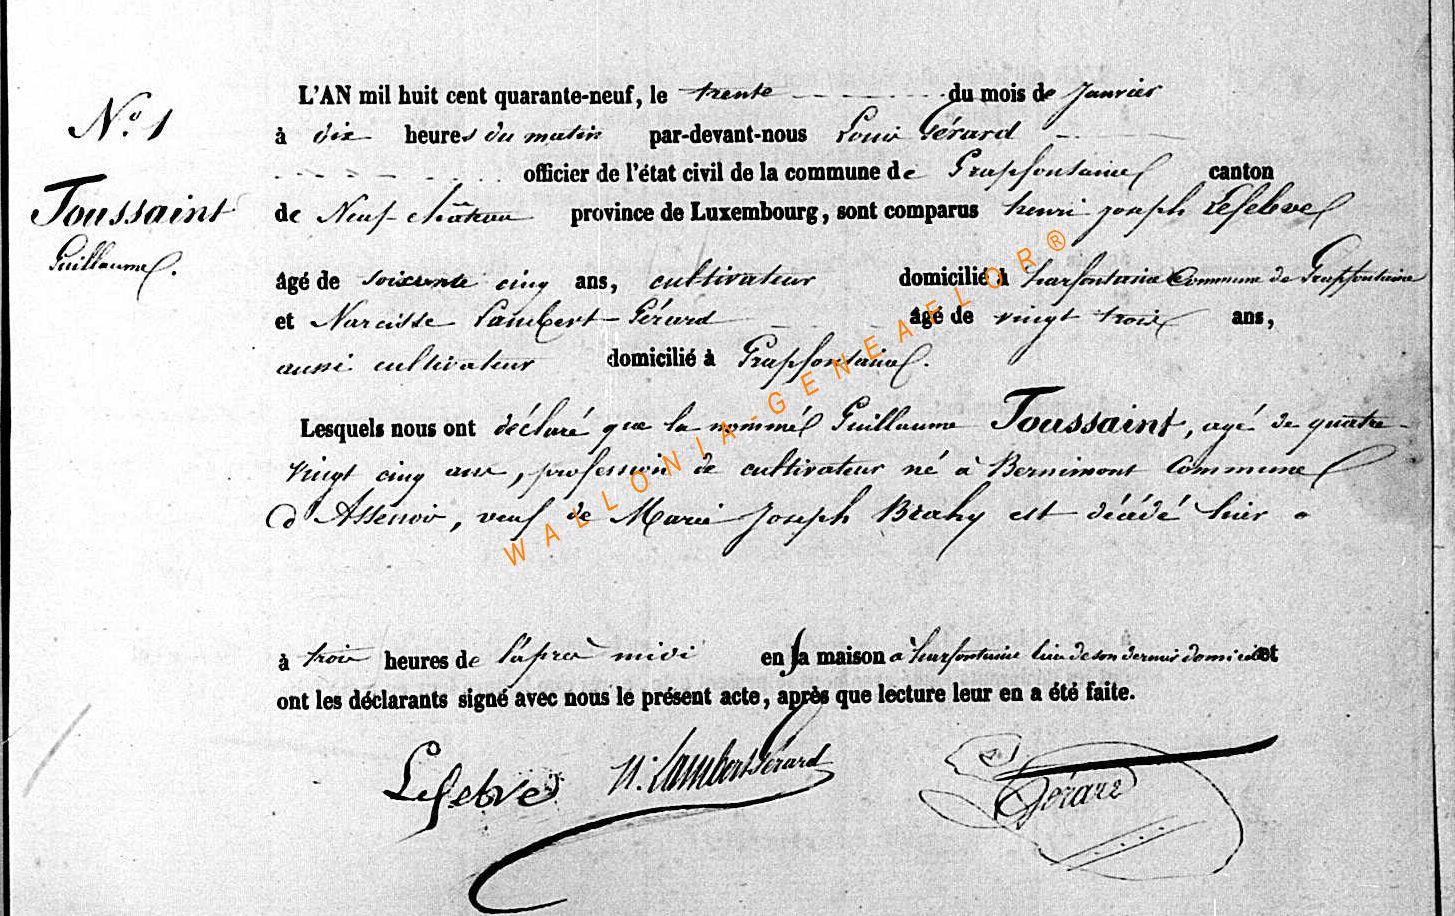 N.º 1
Toussaint
Guillaume.
L'AN mil huit cent quarante-neuf, le trente du mois de Janvier
à dix heures du matin par-devant-nous Louis Gérard
officier de l'état civil de la commune de Grapfontaine canton
de Neufchâteau province de Luxembourg, sont comparus henri joseph Lefebvre
âgé de soixante cinq ans, cultivateur domicilié à harfontaine Commune de Grapfontaine
et Narcisse Lambert-Gérard âgé de vingt trois ans,
aussi cultivateur domicilié à Grapfontaine.
Lesquels nous ont déclaré que le nommé Guillaume Toussaint, agé de quatre-
vingt cinq ans, profession de cultivateur né à Bernimont Commune
d'Assenois, veuf de Marie Joseph Brahy est décédé hier
à trois heures de l'après midi en sa maison à harfontaine lieu de son dernier domicile et
ont les déclarants signé avec nous le présent acte, après que lecture leur en a été faite.
Lefebvre N. Lambert Gérard Gérard
WALLONIA-GENEAFLOR®